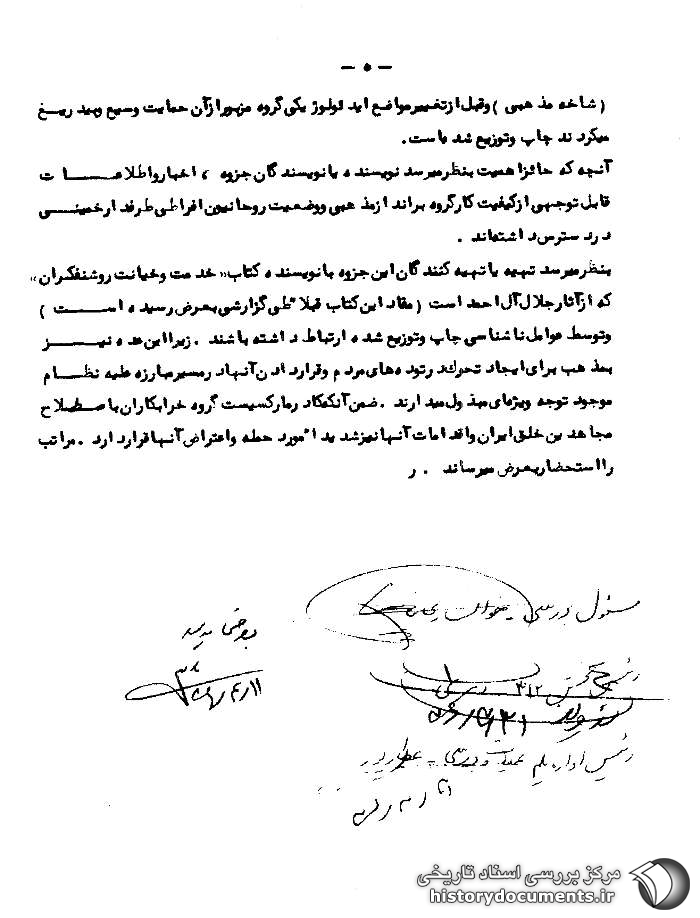 — ۵ —
(شاخه مذهبی) وقبل ازتغییرمواضع ایدئولوژیکی گروه مزبورازآن حمایت وسیع وبیدریغ
میکردند چاپ وتوزیع شده است.
آنچه که حائزاهمیت بنظرمیرسد نویسنده یا نویسندگان جزوه ، اخبارواطلاعـــات
قابل توجهی ازکیفیت کارگروه براندازمذهبی ووضعیت روحانیون افراطی طرفدارخمینــی
دردسترس داشته‌اند .
بنظرمیرسد تهیه یا تهیه کنندگان این جزوه با نویسنده کتاب «خدمت وخیانت روشنفکران»
که ازآثارجلال آل احمد است (مفاد این کتاب قبلا" طی گزارشی بعرض رسیده اســـت )
وتوسط عوامل ناشناسی چاپ وتوزیع شده ارتباط داشته باشند . زیرا این عده نیــز
بمذهب برای ایجاد تحرک درتوده‌های مردم وقراردادن آنها درمسیرمبارزه علیه نظــام
موجود توجه ویژه‌ای مبذول میدارند . ضمن آنکه کادرمارکسیست گروه خرابکاران باصطلاح
مجاهدین خلق ایران واقدامات آنها نیزشدیدا" مورد حمله واعتراض آنها قراردارد . مراتب
رااستحضاربعرض میرساند . ر
مسئول بررسی
بعرض رسید
رئیس بخش ۳۱۲
رئیس اداره یکم عملیات و بررسی
مرکز بررسی اسناد تاریخی
historydocuments.ir